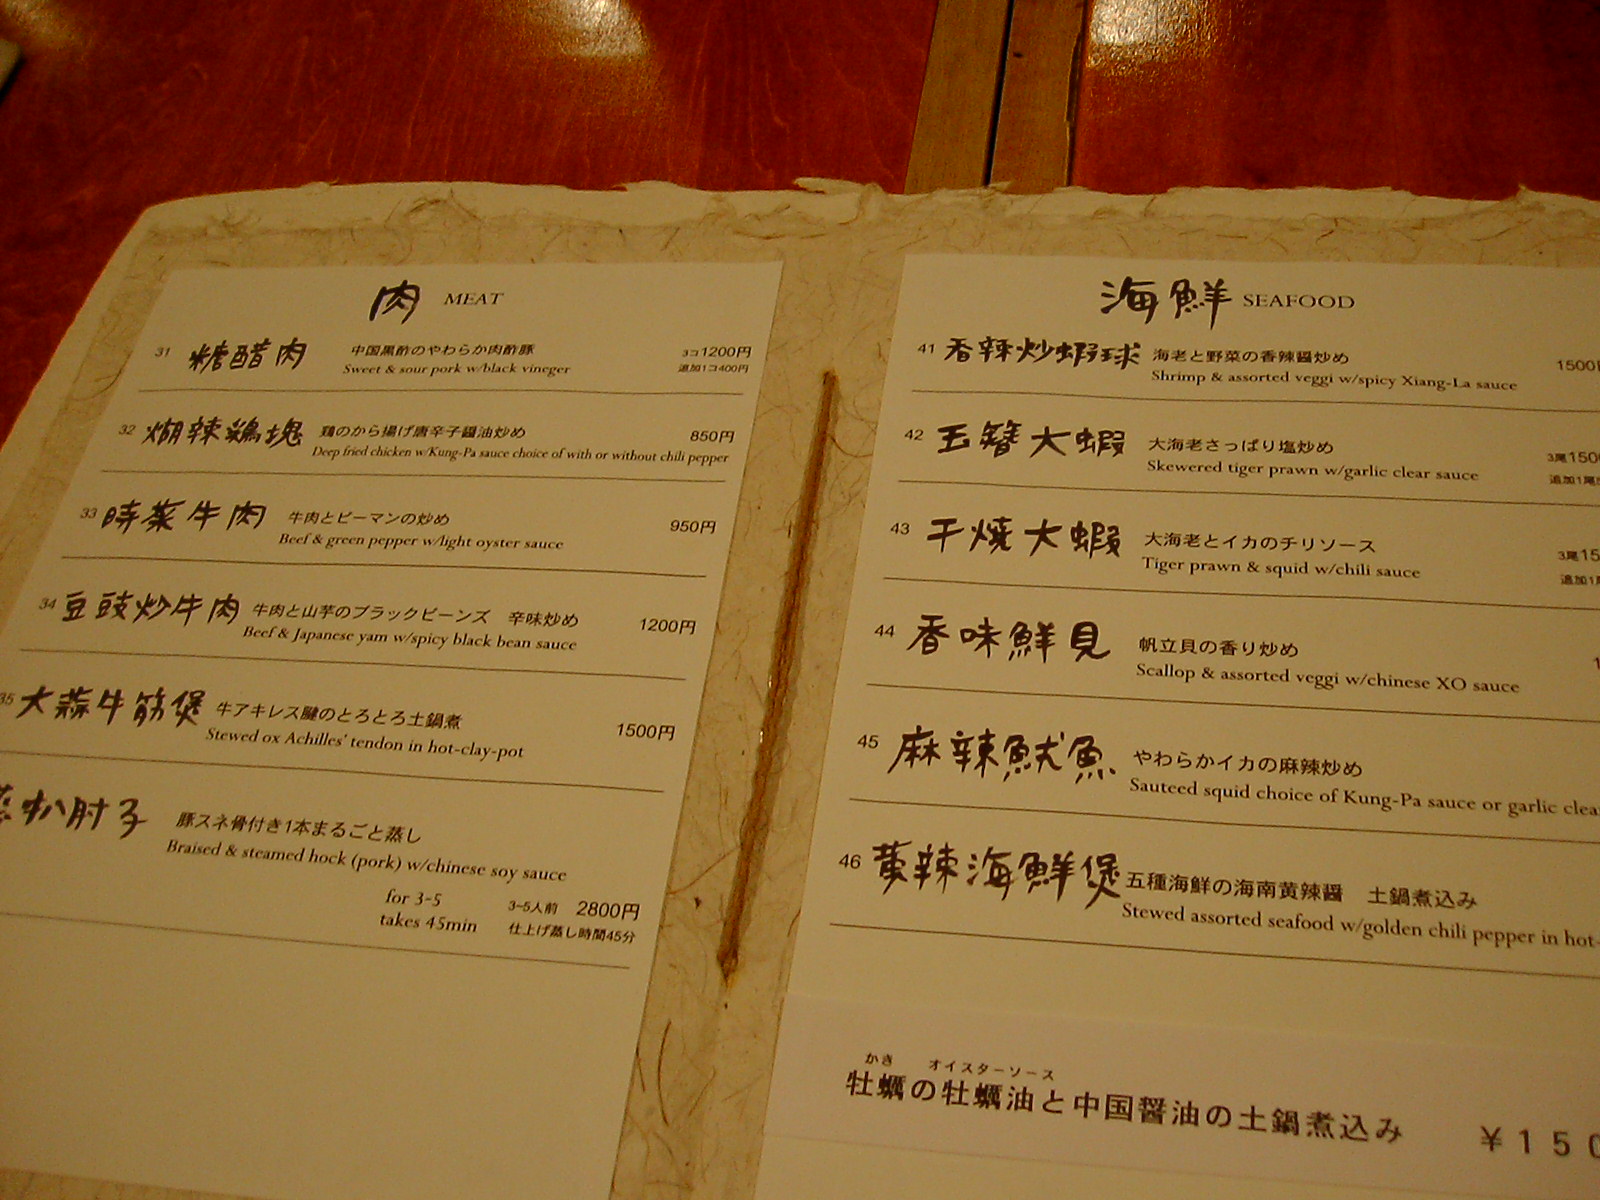 肉 MEAT
31 糖醋肉 中国黒酢のやわらか肉酢豚 3コ1200円
Sweet & sour pork w/black vineger 追加1コ400円
32 煳辣鶏塊 鶏のから揚げ唐辛子醤油炒め 850円
Deep fried chicken w/Kung-Pa sauce choice of with or without chili pepper
33 時菜牛肉 牛肉とピーマンの炒め 950円
Beef & green pepper w/light oyster sauce
34 豆豉炒牛肉 牛肉と山芋のブラックビーンズ 辛味炒め 1200円
Beef & Japanese yam w/spicy black bean sauce
35 大蒜牛筋煲 牛アキレス腱のとろとろ土鍋煮 1500円
Stewed ox Achilles' tendon in hot-clay-pot
扒肘子 豚スネ骨付き1本まるごと蒸し
Braised & steamed hock (pork) w/chinese soy sauce
for 3-5 3~5人前 2800円
takes 45min 仕上げ蒸し時間45分
海鮮 SEAFOOD
41 香辣炒蝦球 海老と野菜の香辣醤炒め 1500
Shrimp & assorted veggi w/spicy Xiang-La sauce
42 玉簪大蝦 大海老さっぱり塩炒め 3尾150
Skewered tiger prawn w/garlic clear sauce 追加1尾
43 干燒大蝦 大海老とイカのチリソース 3尾15
Tiger prawn & squid w/chili sauce 追加1
44 香味鮮貝 帆立貝の香り炒め 1
Scallop & assorted veggi w/chinese XO sauce
45 麻辣魷魚 やわらかイカの麻辣炒め
Sauteed squid choice of Kung-Pa sauce or garlic clea
46 黄辣海鮮煲 五種海鮮の海南黄辣醤 土鍋煮込み
Stewed assorted seafood w/golden chili pepper in hot-
かき オイスターソース
牡蠣の牡蠣油と中国醤油の土鍋煮込み ￥150